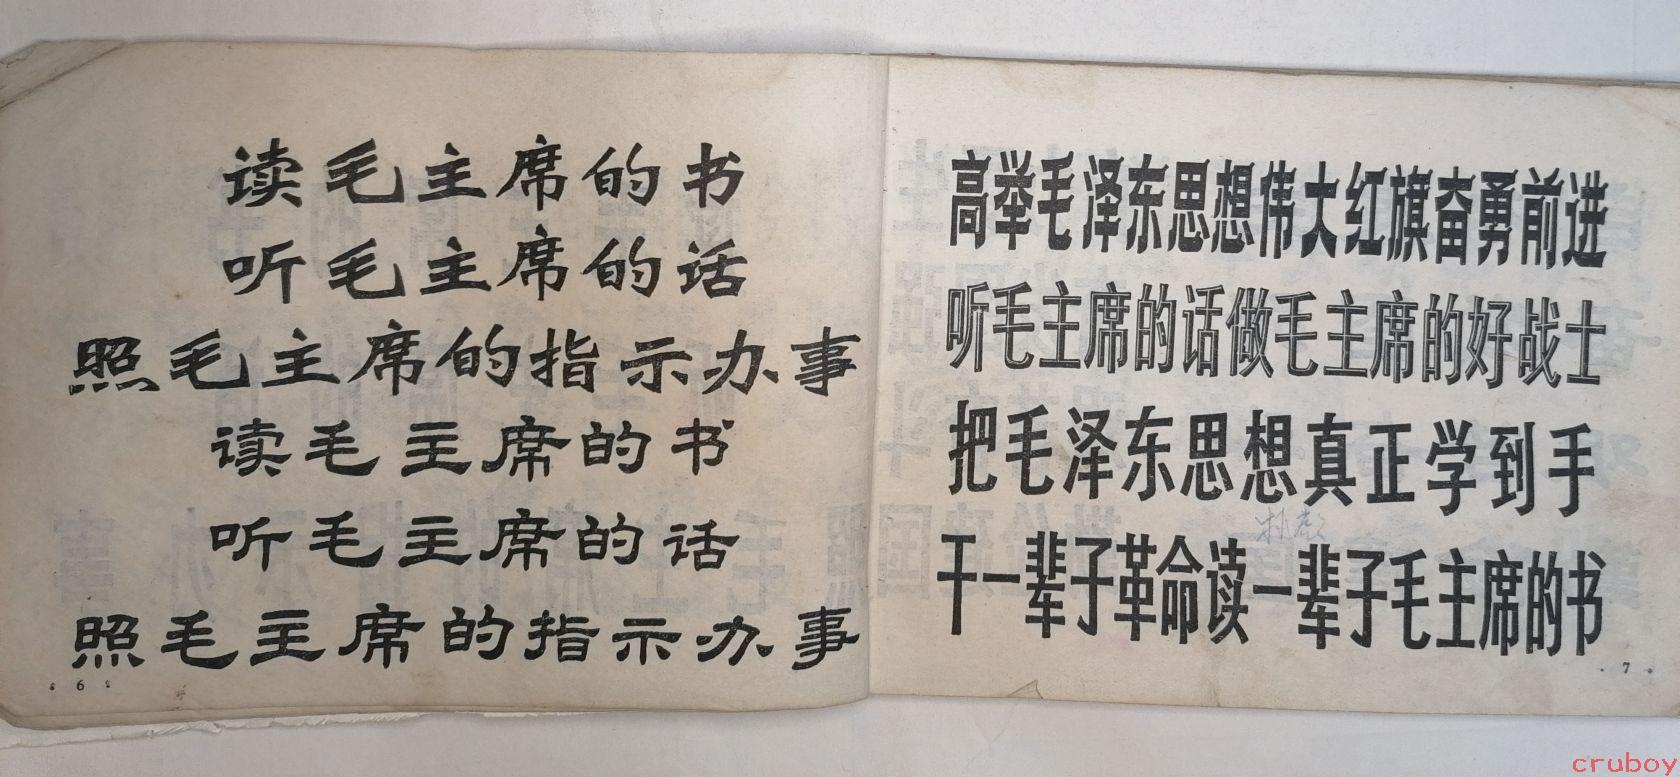 读毛主席的书
听毛主席的话
照毛主席的指示办事
读毛主席的书
听毛主席的话
照毛主席的指示办事
· 6 ·
高举毛泽东思想伟大红旗奋勇前进
听毛主席的话做毛主席的好战士
把毛泽东思想真正学到手
干一辈子革命读一辈子毛主席的书
· 7 ·
cruboy